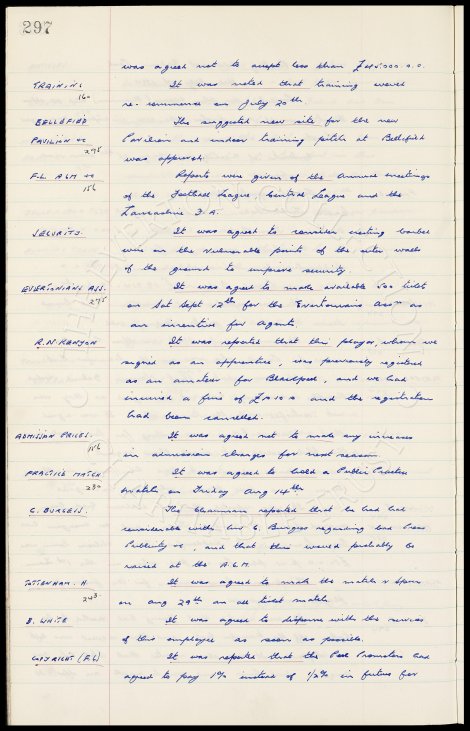 297
was agreed not to accept less than £45,000.0.0.
TRAINING It was noted that training would
160 re-commence on July 20th.
BELLEFIELD The suggested new site for the new
PAVILION &c Pavilion and indoor training pitch at Bellefield
295 was approved.
F.L. AGM &c Reports were given of the Annual meetings
156 of the Football League, Central League and the
Lancashire F.A.
SECURITY. It was agreed to consider erecting barbed
wire on the vulnerable points of the outer walls
of the ground to improve security.
EVERTONIANS ASS. It was agreed to make available 500 tickets
295 on Sat Sept 12th for the Evertonians Assn as
an incentive for agents.
R.N. KENYON It was reported that this player, whom we
signed as an apprentice, was previously registered
as an amateur for Blackpool, and we had
incurred a fine of and the registration
had been cancelled.
ADMISSION PRICES. It was agreed not to make any increase
156 in admission charges for next season.
PRACTICE MATCH. It was agreed to hold a Public Practice
230 match on Friday Aug 14th.
C. BURGESS. The Chairman reported that he had had
considerable with C. Burgess regarding bad
Publicity &c, and that this would probably be
raised at the A.G.M.
TOTTENHAM. H It was agreed to make the match v Spurs
243 on Aug 29th an all ticket match.
B. WHITE It was agreed to dispense with the services
of this employee as soon as possible.
COPYRIGHT (F.L) It was reported that the Pool Promoters had
agreed to pay 1% instead of ½% in future for